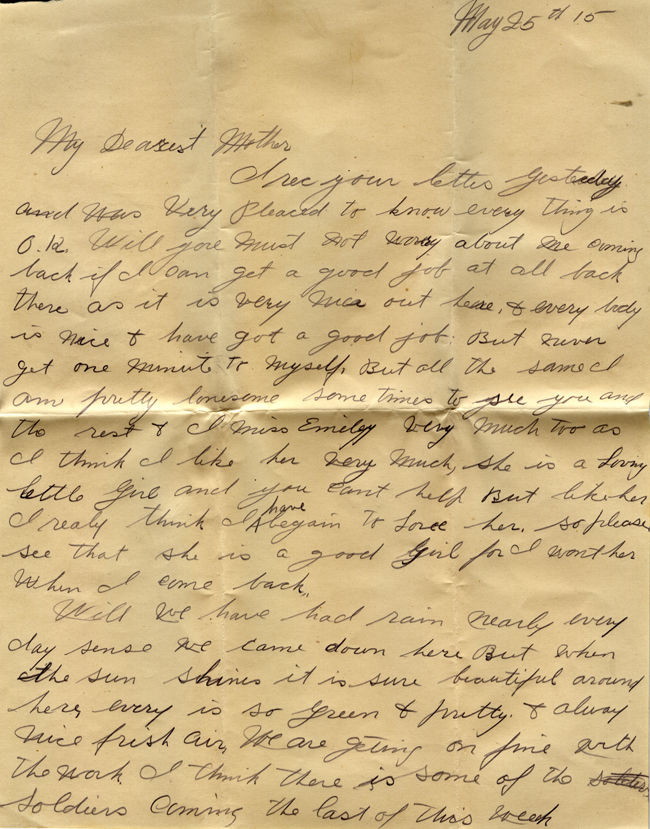 May 25th 15
My Dearest Mother
I rec your letter yesteday
and was very pleaced to know every thing is
O.K. Will you must not worry about me coming
back if I can get a good job at all back
there as it is very nice out here, & every body
is nice & have got a good job. But never
get one minute to myself. But all the same I
am pretty lonesome some times to see you and
the rest & I miss Emiley very much too as
I think I like her very much, she is a loving
little girl and you cant help But like her
I realy think I have begain to love her. so please
see that she is a good girl for I wont her
when I come back.
Will we have had rain nearly every
day sense we came down here But when
the sun shines it is sure beautiful around
here, every is so green & pretty. & alway
nice fresh air, We are geting on fine with
the work. I think there is some of the soldiers
soldiers coming the last of this week